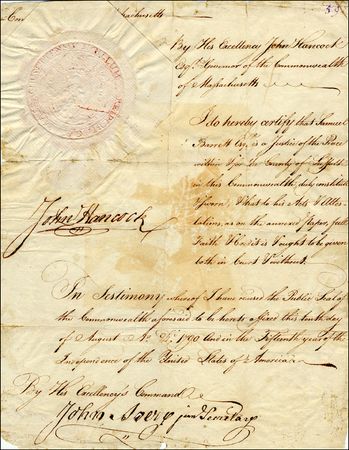 achusetts
By His Excellency John Hancock
Esqr. Governor of the Commonwealth
of Massachusetts
I do hereby certify that Samuel
Barrett Esqr. is a Justice of the Peace
within & for the County of Suffolk
in this Commonwealth, duly constituted
& sworn, & that to his Acts & Attes
tations, as on the annexed Paper, full
Faith & Credit is & ought to be given
both in Court & without.
John Hancock
In Testimony whereof I have caused the Public Seal of
the Commonwealth aforesaid to be hereto affixed this tenth day
of August 1790 And in the Fifteenth year of the
Independence of the United States of America
By His Excellency's Command
John Avery junr Secretary